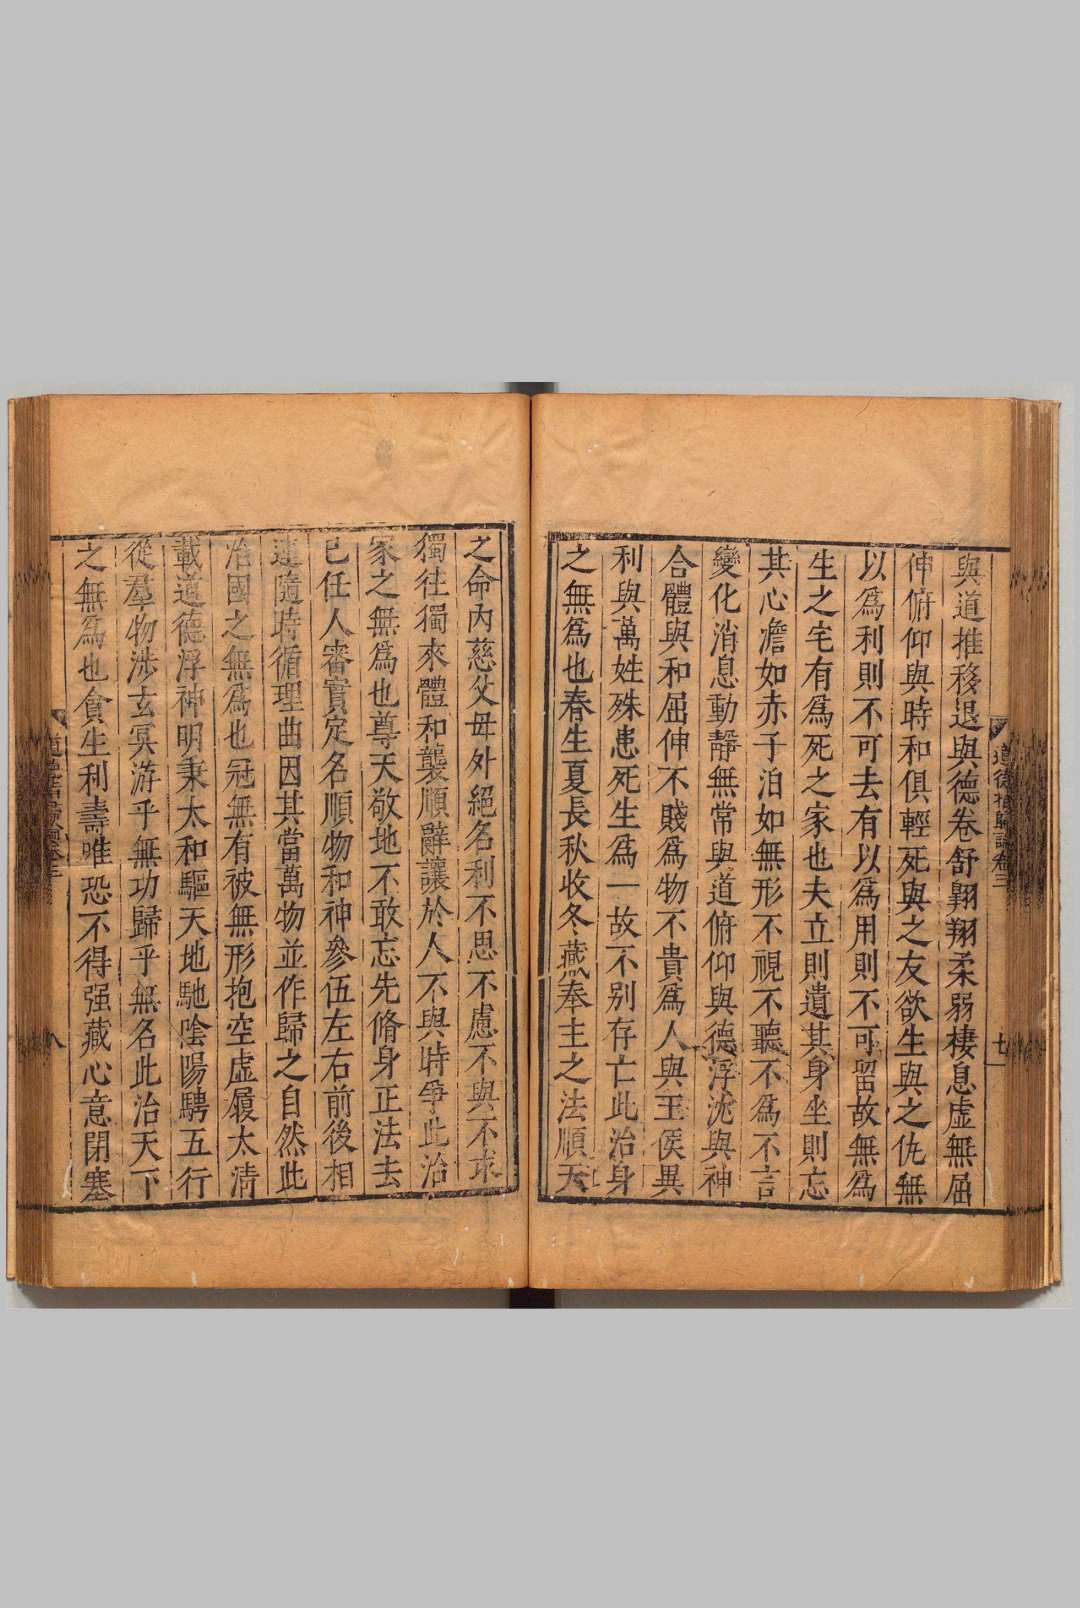 與道推移退與德卷舒翺翔柔弱棲息虛無屈
伸俯仰與時和俱輕死與之友欲生與之仇無
以爲利則不可去有以爲用則不可留故無爲
生之宅有爲死之家也夫立則遺其身坐則忘
其心澹如赤子泊如無形不視不聽不爲不言
變化消息動靜無常與道俯仰與德浮沈與神
合體與和屈伸不賤爲物不貴爲人與王侯異
利與萬姓殊患死生爲一故不别存亡此治身
之無爲也春生夏長秋收冬藏奉主之法順天
之命內慈父母外絕名利不思不慮不與不求
獨往獨來體和襲順辭讓於人不與時爭此治
家之無爲也尊天敬地不敢忘先脩身正法去
已任人審實定名順物和神參伍左右前後相
違隨時循理曲因其當萬物並作歸之自然此
治國之無爲也冠無有被無形抱空虛履太清
載道德浮神明秉太和驅天地馳陰陽騁五行
從羣物涉玄冥游乎無功歸乎無名此治天下
之無爲也貪生利壽唯恐不得强藏心意閉塞
道德指歸論卷三
七
八